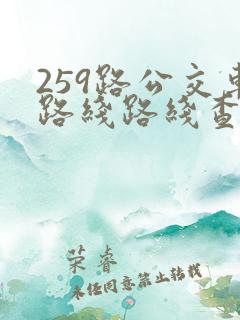 259路公交车
路线路线查
荣睿
未经同意禁止转载